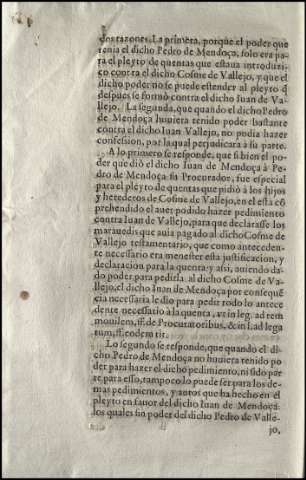 dos razones. La primera, porque el poder que
tenia el dicho Pedro de Mendoça, solo era pa-
ra el pleyto de quentas que estaua introduzi-
do contra el dicho Cosme de Vallejo, y que el
dicho poder no se puede estender al pleyto q̃
despues se formò contra el dicho Iuan de Va-
llejo. La segunda, que quando el dicho Pedro
de Mendoça huuiera tenido poder bastante
contra el dicho Iuan Vallejo, no podia hazer
confession, por la qual perjudicara à su parte.
A lo primero se responde, que si bien el po-
der que diò el dicho Iuan de Mendoça à Pe-
dro de Mendoça su Procurador, fue especial
para el pleyto de quentas que pidiò a los hijos
y herederos de Cosme de Vallejo, en el està cõ-
prehendido el auer podido hazer pedimiento
contra Iuan de Vallejo, para que declarasse los
marauedis que auia pagado al dicho Cosme de
Vallejo testamentario, que como anteceden-
te necessario era menester esta justificacion, y
declaracion para la quenta y assi, auiendo da-
do poder para pedirla al dicho Cosme de Va-
llejo, el dicho Iuan de Mendoça por consequẽ
cia necessaria le dio para pedir todo lo antece
dente necessatio à la quenta, vt in leg. ad rem
mobilem, ff. de Procuratoribus, & in l. ad lega
tum, ff. eodem tit.
Lo segundo se responde, que quando el di-
cho Pedro de Mendoça no huuiera tenido po
der para hazer el dicho pedimiento, ni sido par
te para esso, tampoco lo puede ser para los de-
mas pedimientos, y autos que ha hecho en el
pleyto en fauor del dicho Iuan de Mendoça:
los quales sin poder del dicho Pedro de Valle-
jo,